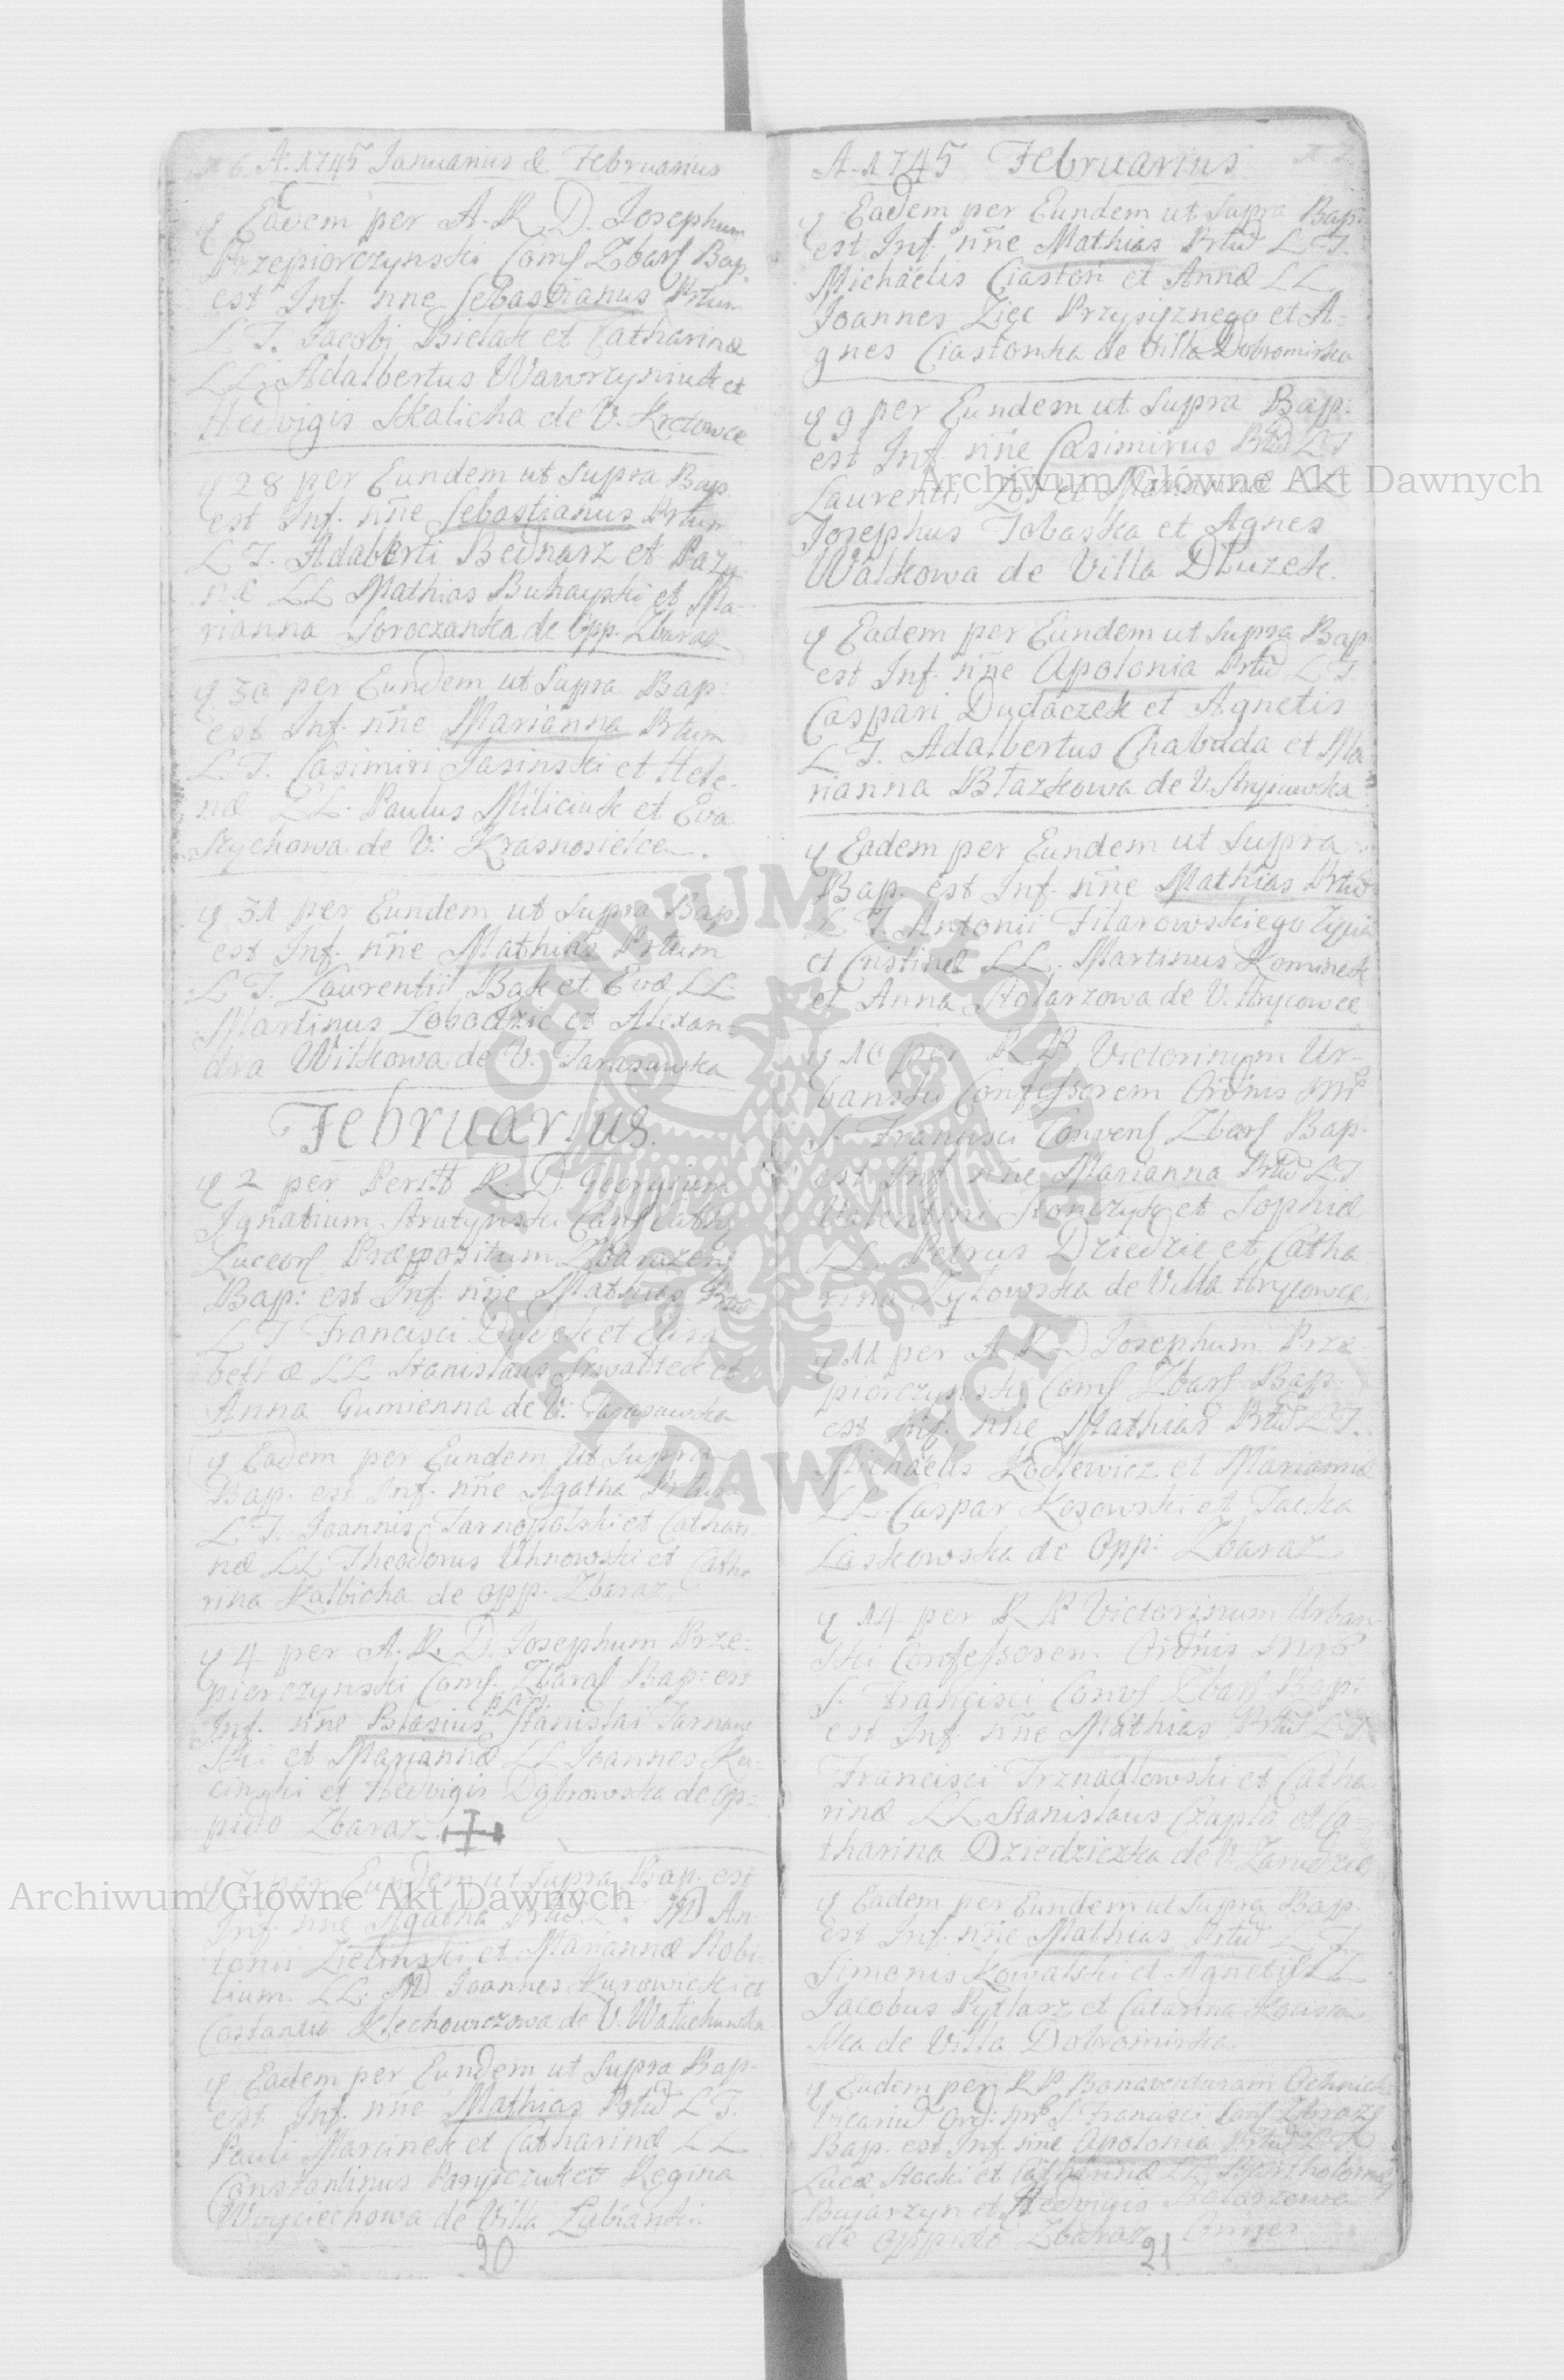 A. 1745 Januarius & Februarius
Eadem per A. R. D. Josephum
Przepiorczynski Coms Zbars Bap.
est Inf. nn̄e Sebastianus Prtum
L T. Jacobi Bielak et Catharinæ
LL. Adalbertus Wawrzyniuk et
Hedvigis Skalicha de V. Kretowce
28 per Eundem ut supra Bap.
est Inf. nn̄e Sebastianus Prtum
L T. Adalberti Bednarz et Pazy
næ LL Mathias Buhayski et Ma-
rianna Soroczanka de Opp. Zbaraz
30 per Eundem ut supra Bap:
est Inf. nn̄e Marianna Prtum
L T. Casimiri Jasinski et Hele-
næ LL. Paulus Miliciuk et Eva
Stychowa de V: Krasnosielce.
31 per Eundem ut supra Bap.
est Inf. nn̄e Mathias Prtum
L T. Laurentii Bak et Evæ LL.
Martinus Lobodzic et Alexan-
dra Witkowa de V. Tarasowka
Februarius.
2 per R. D. Georgium
Ignatium Strutynski
Luceors Præpositum Zbarazens
Bap: est Inf. nn̄e Mathias
L T Francisci Dudek et Elisa
bethæ LL Stanislaus et
Anna Gumienna de V. Tarasawka
Eadem per Eundem ut supra
Bap. est Inf. nn̄e Agatha
L T. Joannis Tarnopolski et Cathari-
næ LL Theodorus Uhnowski et Catha
rina Kalbicha de opp. Zbaraz
4 per A. R. D. Josephum Prze-
piorczynski Coms. Zbaras Bap: est
Inf. nn̄e Blasius Stanislai Tarnaw
ski et Mariannæ LL Joannes Ku-
cinski et Hedvigis Dąbrowska de Op-
pido Zbaraz
per Eundem ut supra Bap. est
Inf. nn̄e Agatha An-
tonii Zielinski et Mariannæ Nobi-
lium. LL. Joannes Kurowicki et
Costantia Klechowiczowa de V. Walachuwka
Eadem per Eundem ut supra Bap.
est Inf. nn̄e Mathias Prtu L T.
Pauli Marcinek et Catharinæ LL
Constantinus Panyiczuk et Regina
Woyciechowa de Villa Lubianki.
20
A. 1745 Februarius
Eadem per Eundem ut supra Bap:
est Inf. nn̄e Mathias Prtu L T.
Michaelis Ciaston et Annæ LL
Joannes Zięc Przysięznego et A-
gnes Ciastonka de Villa Dobromirka
9 per Eundem ut supra Bap:
est Inf. nn̄e Casimirus Prtu L T
Laurentii et Mariannæ LL
Josephus Tobaska et Agnes
Walkowa de Villa Dłuzek.
Eadem per Eundem ut supra Bap
est Inf. nn̄e Apolonia Prtu L T
Caspari Dudaczek et Agnetis
L T. Adalbertus Chabuda et Ma
rianna Błazkowa de V. Stryiowka
Eadem per Eundem ut supra
Bap. est Inf. nn̄e Mathias Prtu
L T. Antonii Filarowskiego
et Cristinæ LL. Martinus Kominek
et Anna Stolarzowa de V. Hrycowce
10 per R P. Victorinum Ur-
banski Confessorem Ordinis
S. Francisci Convens Zbars Bap.
est Inf. nn̄e Marianna Prtu L T
Valentini Stonczyk et Sophiæ
LL. Petrus Dziedzic et Catha
rina Zylowska de Villa Hrycowce.
11 per A R D Josephum Prze
piorczynski Coms Zbars Bap:
est Inf. nn̄e Mathias Prtu L T.
Michaelis Kodlewicz et Mariannæ
LL. Caspar Kosowski et Jacka
Laskowska de Opp: Zbaraz
14 per R P Victorinum Urban
ski Confessorem Ordinis
S. Francisci Convs Zbars Bap:
est Inf. nn̄e Mathias Prtu L T.
Francisci Trznadlowski et Catha
rinæ LL Stanislaus Czapla et Ca-
tharina Dziedziczka de V. Zarudzie
Eadem per Eundem ut supra Bap.
est Inf. nn̄e Mathias Prtu L T.
Simonis Kowalski et Agnetis LL
Jacobus Pytlarz et Catarina
ska de Villa Dobromirka
Eadem per R P Bonaventuram
Vicariu Ord: S. Francisci
Bap. est Inf. nn̄e Apolonia Prtu L T
Lucæ Stocki et Catharinæ LL Bartholomeus
Bujarzyn et Hedvigis Stolarzowa
de oppido Zbaraz
21
Archiwum Główne Akt Dawnych
Archiwum Główne Akt Dawnych
ARCHIWUM GŁÓWNE AKT DAWNYCH